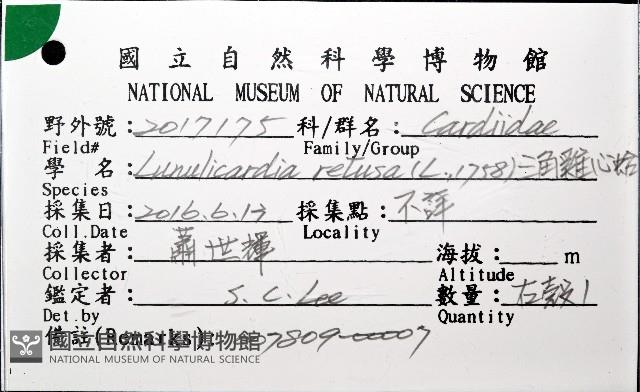 國立自然科學博物館
NATIONAL MUSEUM OF NATURAL SCIENCE
野外號：2017175 科/群名：Cardiidae
Field# Family/Group
學 名：Lunulicardia retusa (L., 1758) 三角雞心蛤
Species
採集日：2016.6.13 採集點：不詳
Coll.Date Locality
採集者：蕭世輝 海拔： m
Collector Altitude
鑑定者：S. C. Lee 數量：左殼1
Det.by Quantity
備註(Remarks) 7809-00007
國立自然科學博物館
NATIONAL MUSEUM OF NATURAL SCIENCE